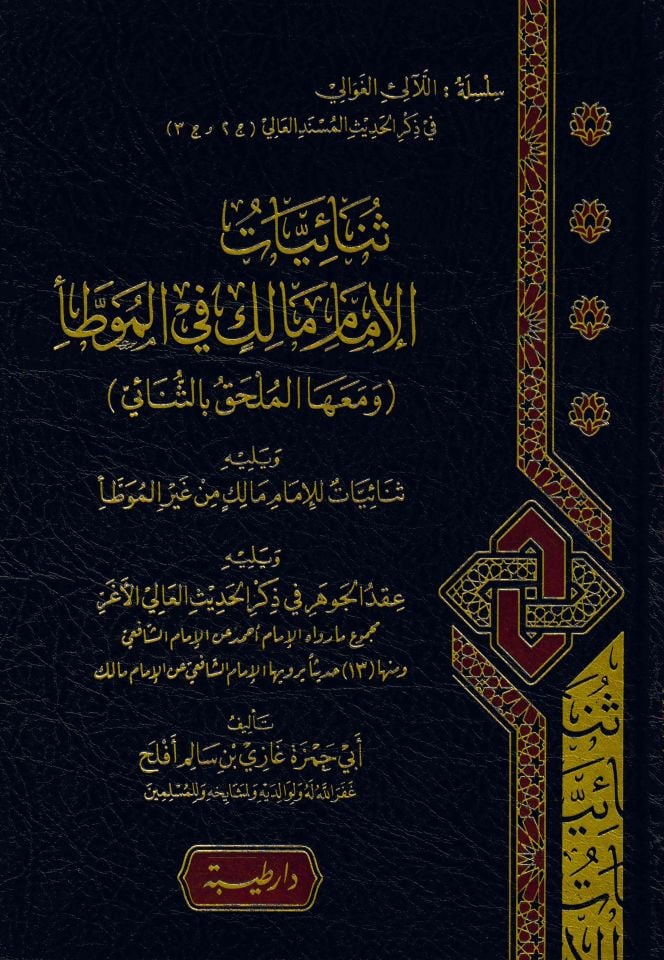 سِلْسِلَةُ : اللَّآلِئِ الغَوَالِيْ
فِيْ ذِكْرِ الحَدِيْثِ المُسْنَدِ العَالِيْ (ج ٢ و ج ٣)
ثُنَائِيَّاتُ
الإِمَامِ مَالِكٍ فِي المُوَطَّأ
(وَمَعَهَا المُلْحَقُ بِالثُّنَائِيّ)
وَيَلِيْهِ
ثُنَائِيَّاتٌ لِلإِمَامِ مَالِكٍ مِنْ غَيْرِ المُوَطَّأ
وَيَلِيْهِ
عِقْدُ الجَوهَرِ فِيْ ذِكْرِ الحَدِيْثِ العَالِيْ الأَغَرّ
مجموع ما رواه الإمام أحمد عن الإمام الشافعي
ومنها (١٣) حديثاً يرويها الإمام الشافعي عن الإمام مالك
تأليف
أَبِيْ حَمْزَةَ غَازِيْ بْنِ سَالِم أَفْلَح
غَفَرَ اللهُ لَهُ وَلِوَالِدَيْهِ وَلِمَشَايِخِهِ وَلِلْمُسْلِمِيْنَ
دار طيبة
ثُنَا
ئِيَّا
تُ
الإ